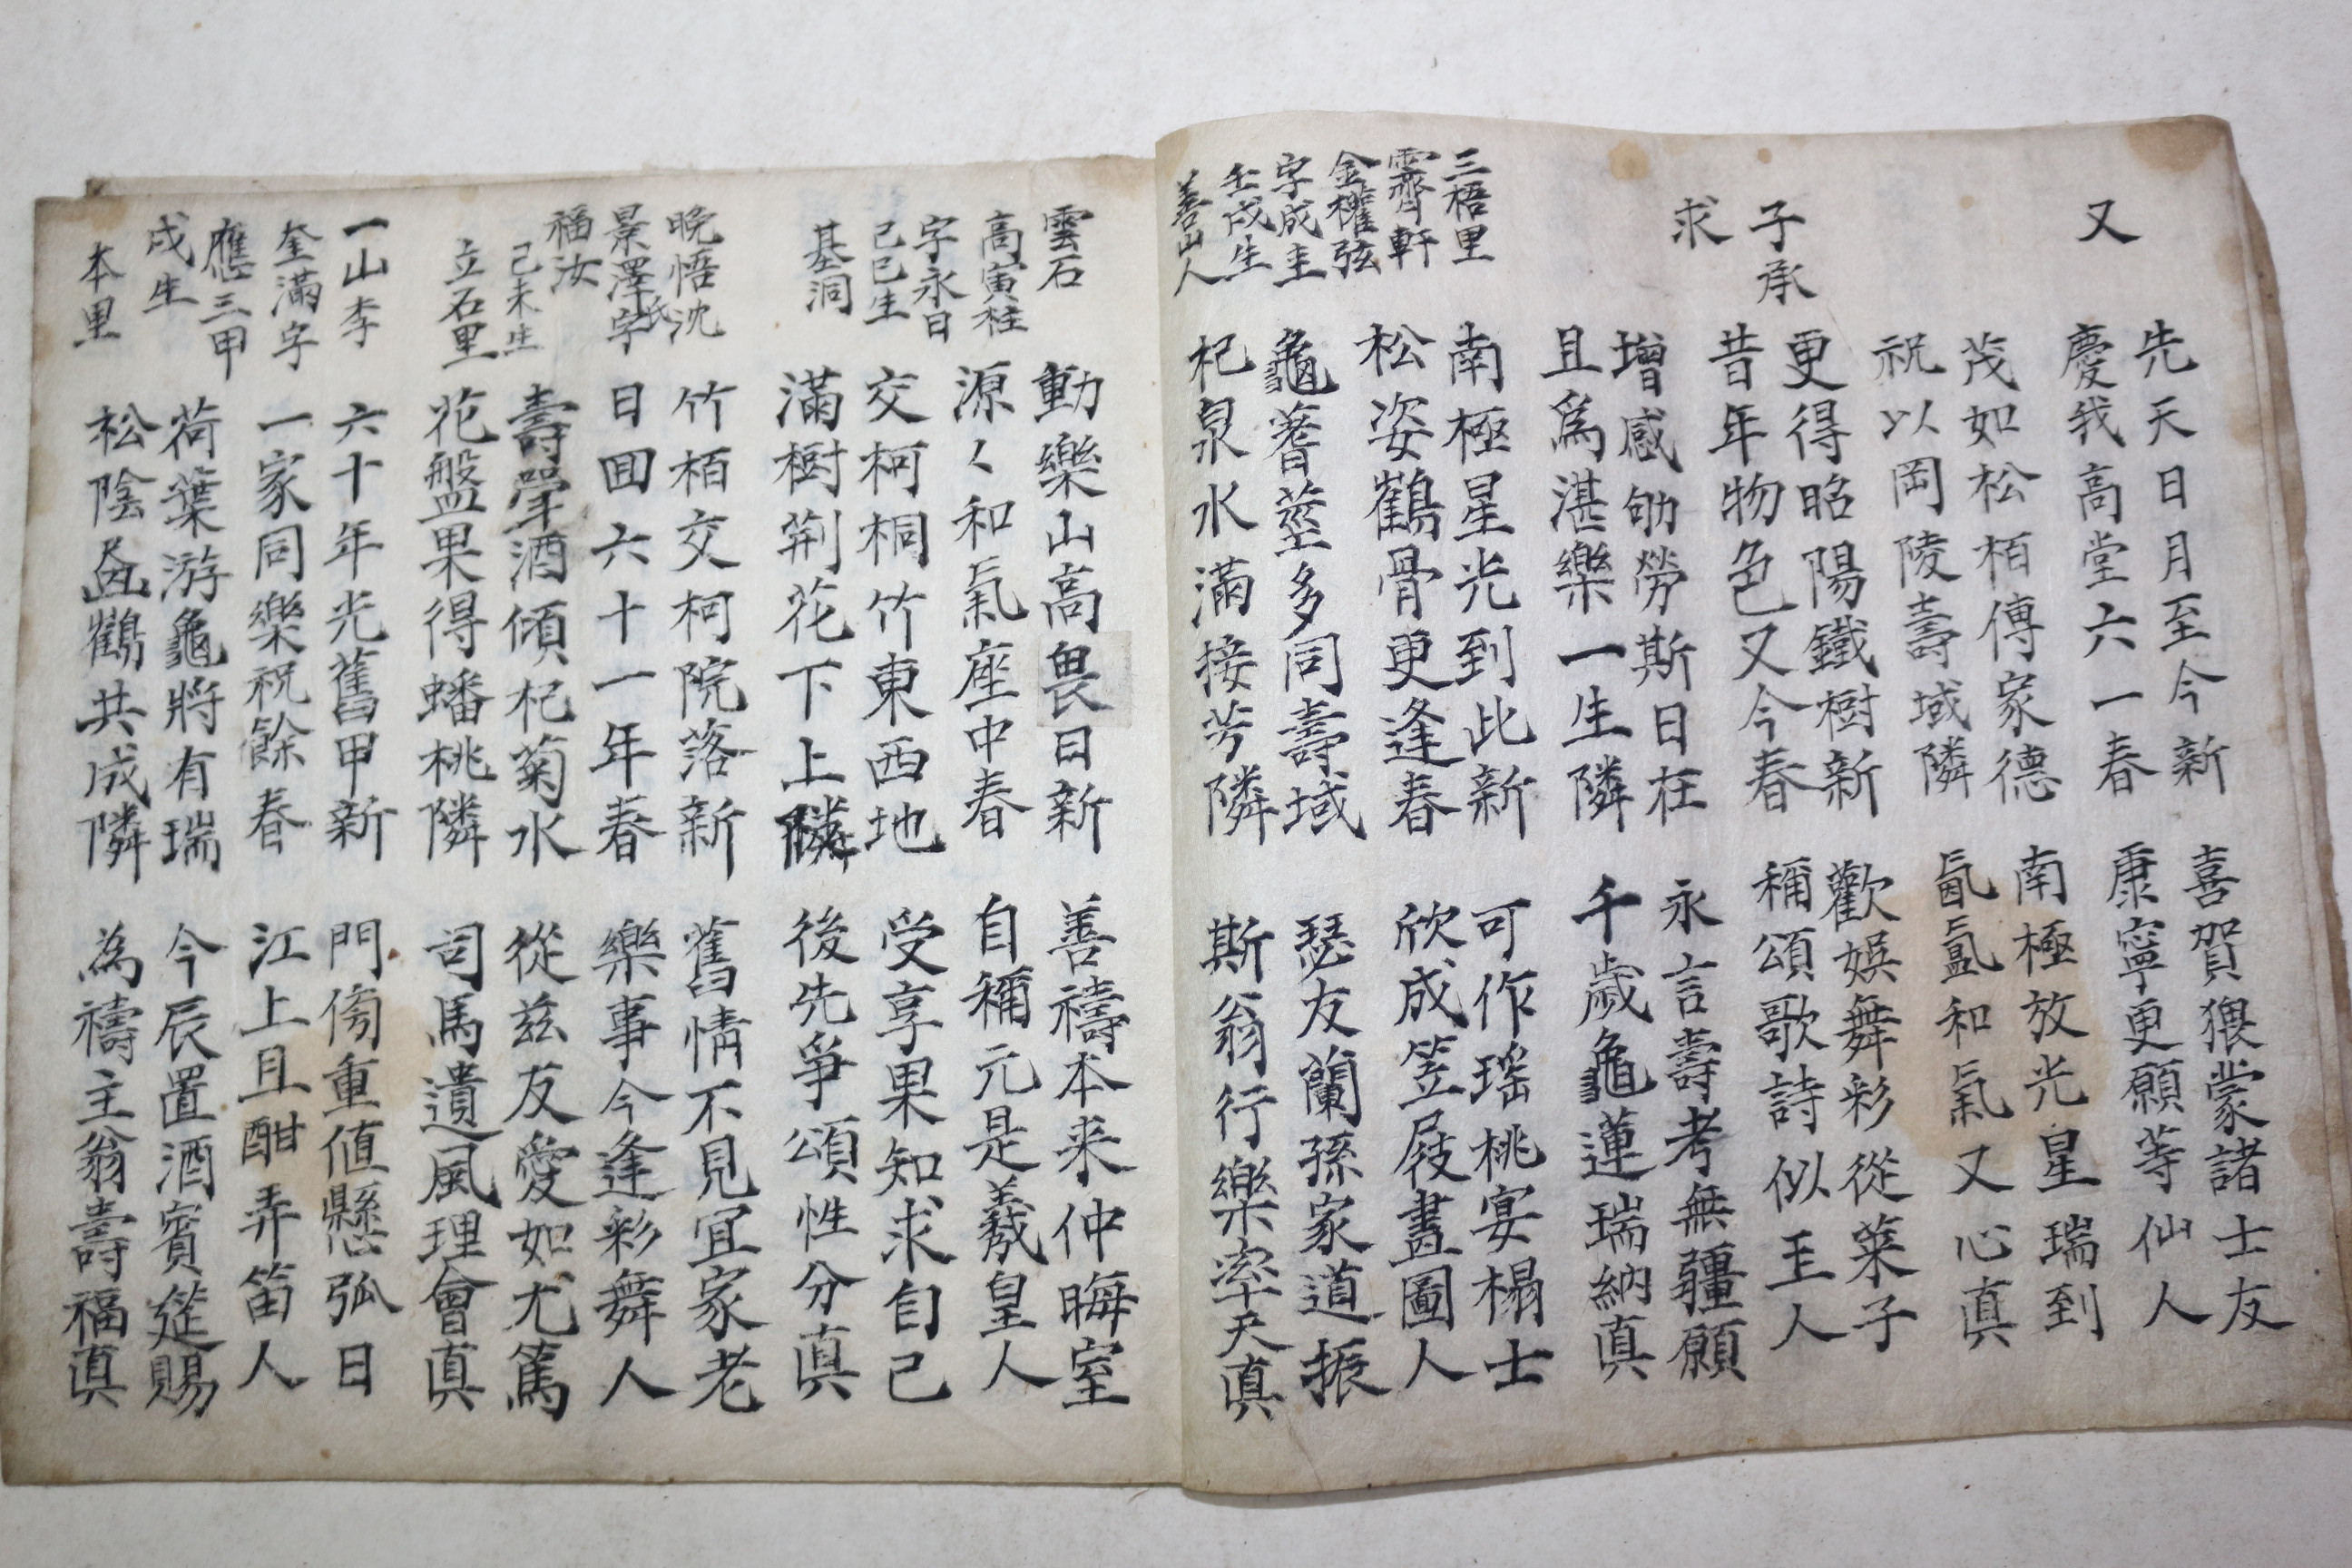 又
先天日月至今新
喜賀猥蒙諸士友
慶我高堂六一春
康寧更願等仙人
茂如松栢傳家德
南極放光星瑞到
祝以岡陵壽域隣
氤氳和氣又心真
子承
求
更得昭陽鐵樹新
歡娛舞彩從萊子
昔年物色又今春
稱頌歌詩似主人
增感劬勞斯日在
永言壽考無疆願
且爲湛樂一生隣
千歲龜蓮瑞納真
三梧里
霽軒
金權弦
字成圭
壬戌生
善山人
南極星光到此新
可作瑤桃宴榻士
松姿鶴骨更逢春
欣成笠屐畵圖人
龜蓍莖多同壽域
瑟友蘭孫家道振
杞泉水滿接芳隣
斯翁行樂率天真
雲石
高寅柱
字永日
己巳生
基洞
動樂山高畏日新
善禱本来仲晦室
源〻和氣座中春
自稱元是羲皇人
交柯桐竹東西地
受享果知求自己
滿樹荊花下上隣
後先爭頌性分真
晩悟沈
景澤字
氏
福汝
己未生
立石里
竹栢交柯院落新
舊情不見冝家老
日回六十一年春
樂事今逢彩舞人
壽觴酒傾杞菊水
從玆友愛如尤篤
花盤果得蟠桃隣
司馬遺風理會真
一山李
奎滿字
應三甲
戌生
本里
六十年光舊甲新
門傍重値懸弧日
一家同樂祝餘春
江上且酣弄笛人
荷葉游龜將有瑞
今辰置酒賓筵賜
松陰鶴共成隣
為禱主翁壽福真